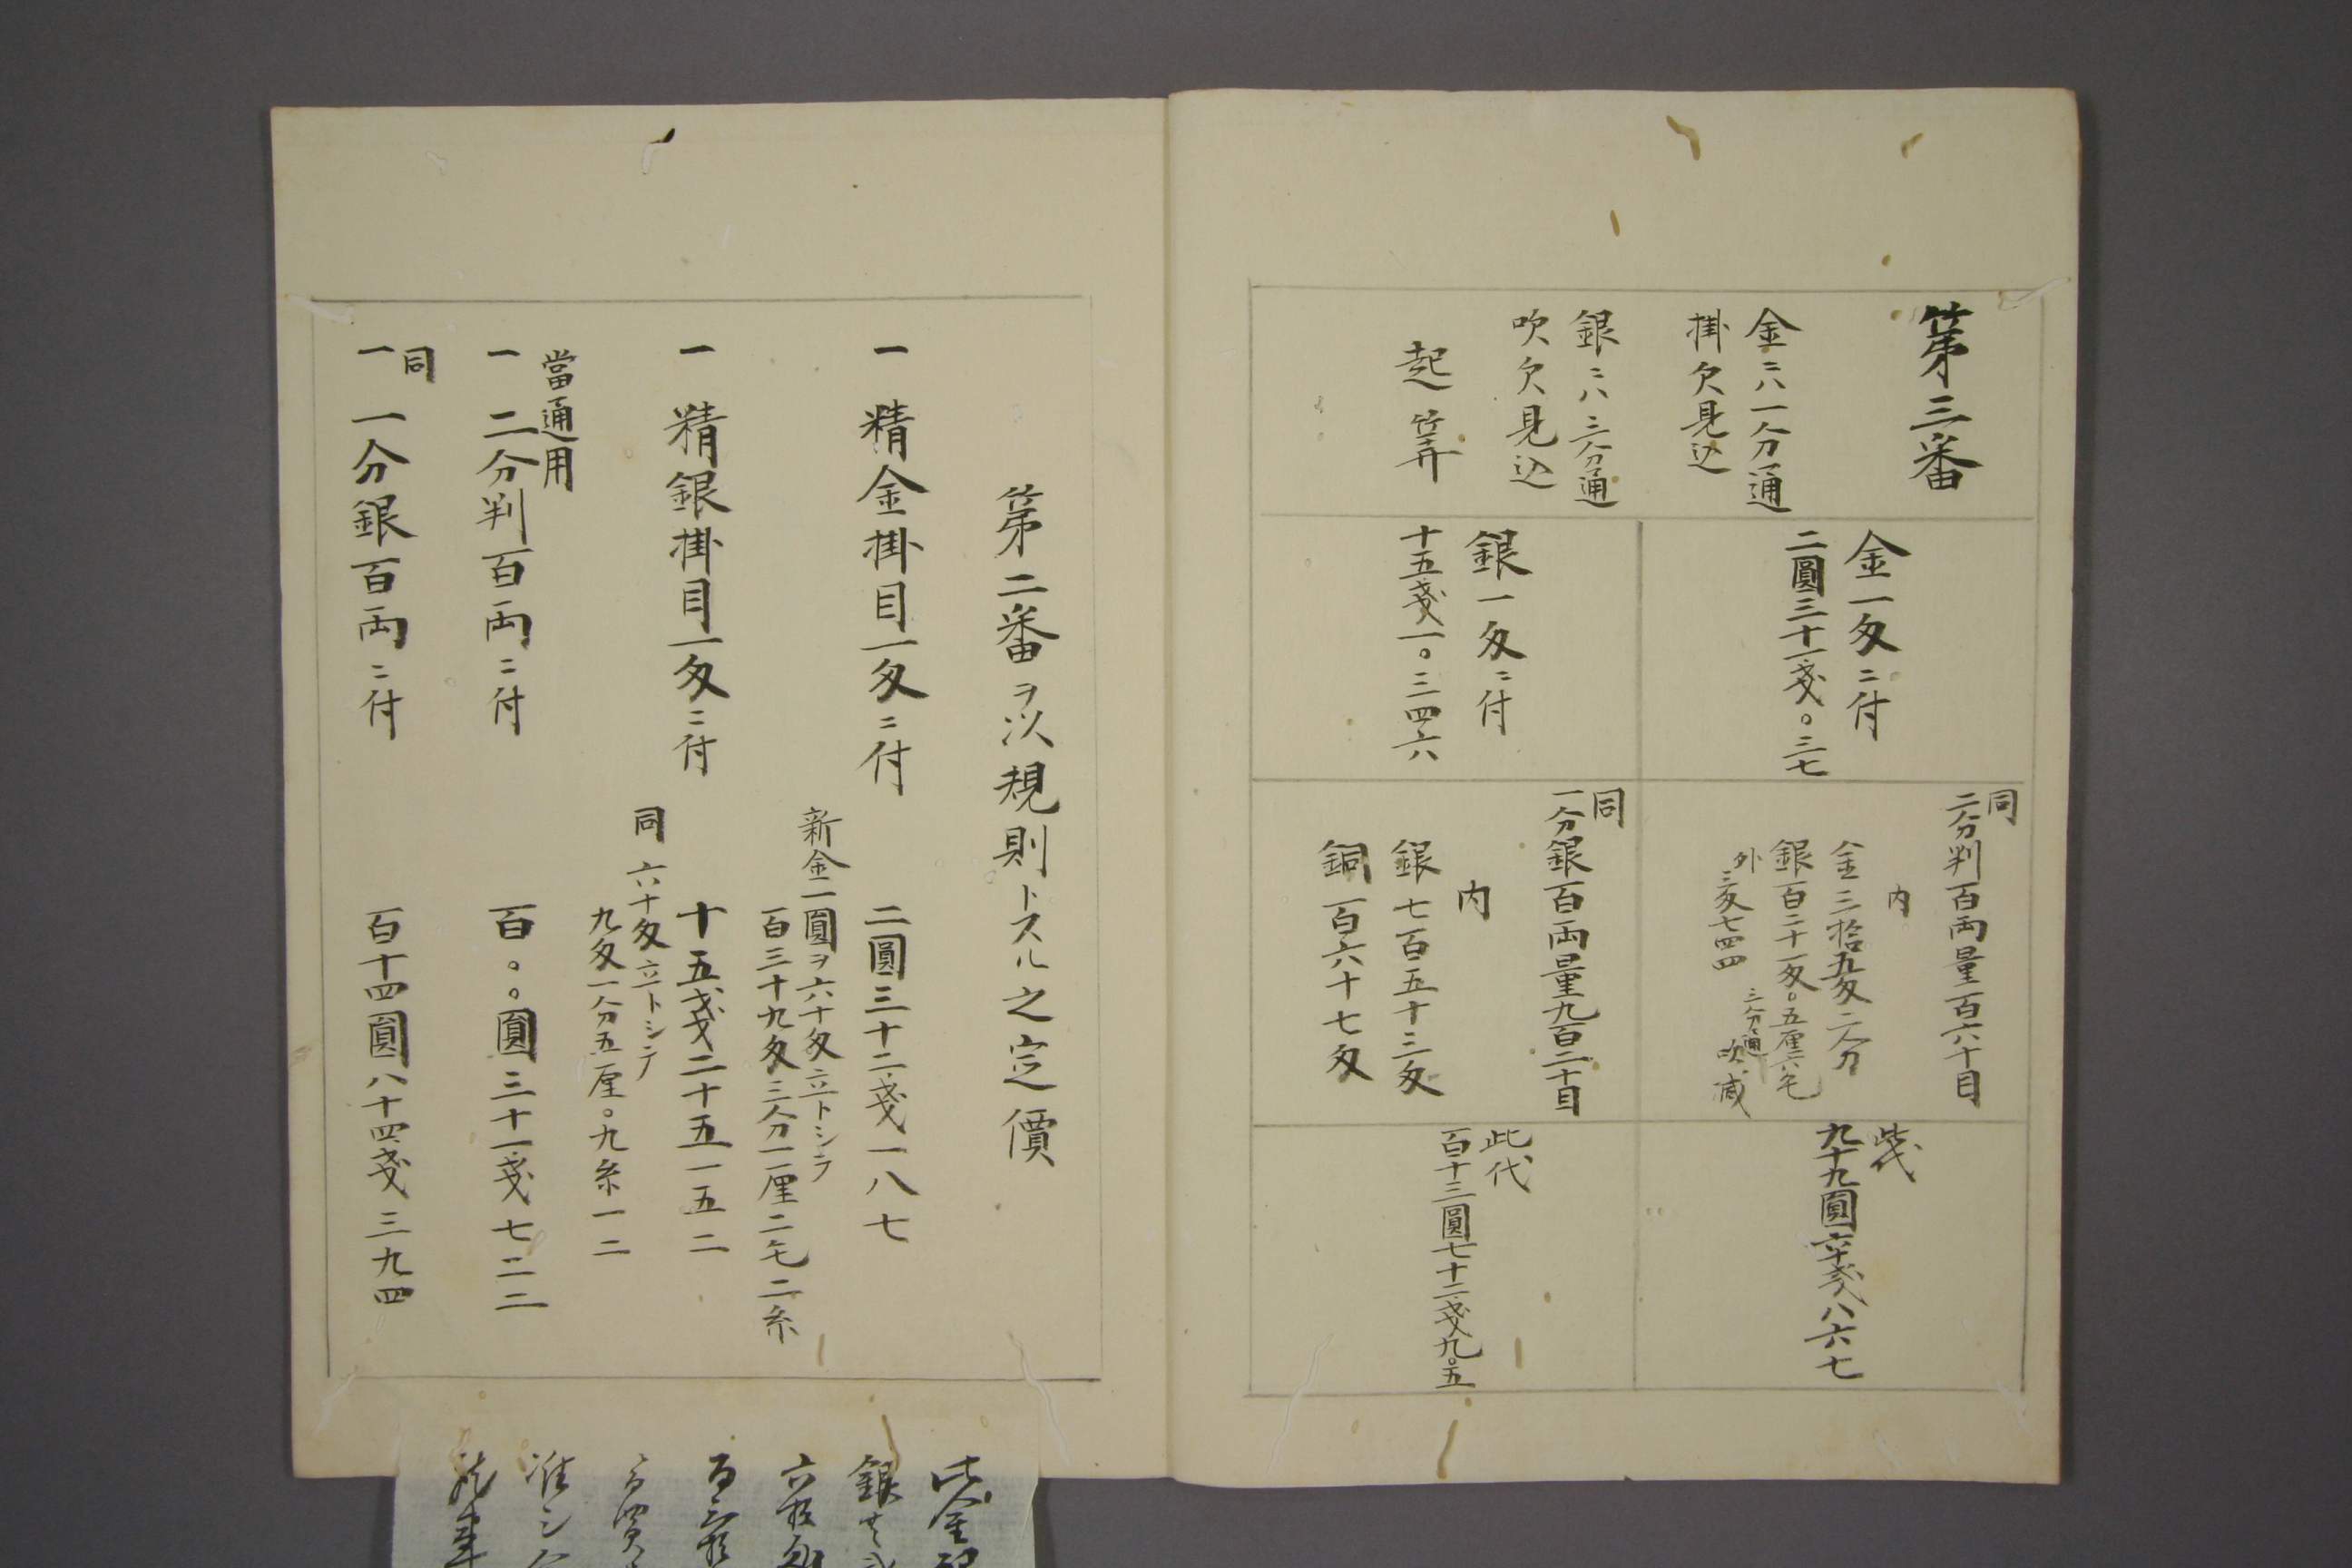 第三番
金ニハ一分通
掛欠見込
銀ニハ三分通
吹欠見込
起筭
金一匁ニ付
二圓三十一戔。三七
銀一匁ニ付
十五戔一。三四六
同
二分判百両量百六十目
内
金三拾五匁二分
銀百二十一匁。五厘六毛
外
三匁七四四
三分通
吹減
同
一分銀百両量九百二十目
内
銀七百五十三匁
銅百六十七匁
此代
九十九圓六十戔八六七
此代
百十三圓七十二戔九。五
第二番ヲ以規則トスル之定價
一 精金掛目一匁ニ付
二圓三十二戔一八七
新金一圓ヲ六十匁立トシテ
百三十九匁三分一厘二毛二糸
一 精銀掛目一匁ニ付
十五戔二十五一五二
同 六十匁立トシテ
九匁一分五厘。九糸一二
當通用
一 二分判百両ニ付
百。。圓三十一戔七二二
同
一 一分銀百両ニ付
百十四圓八十四戔三九四
此金
銀
六拾
百三拾
准シ